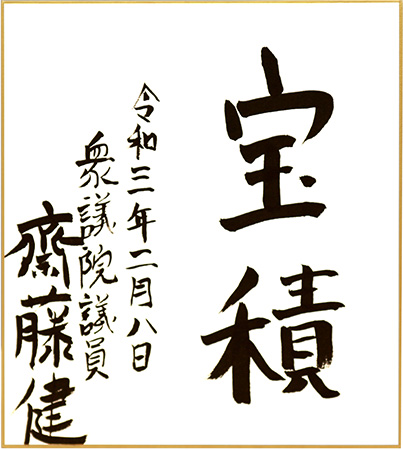 宝積
令和三年二月八日
衆議院議員
齋藤健